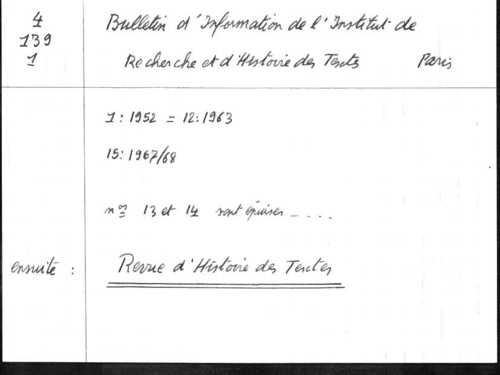 4 Bulletin d'Information de l'Institut de
139
1 Recherche et d'Histoire des Textes Paris
1 : 1952 = 12 : 1963
15 : 1967/68
nos 13 et 14 sont épuisés - . . .
ensuite : Revue d'Histoire des Textes